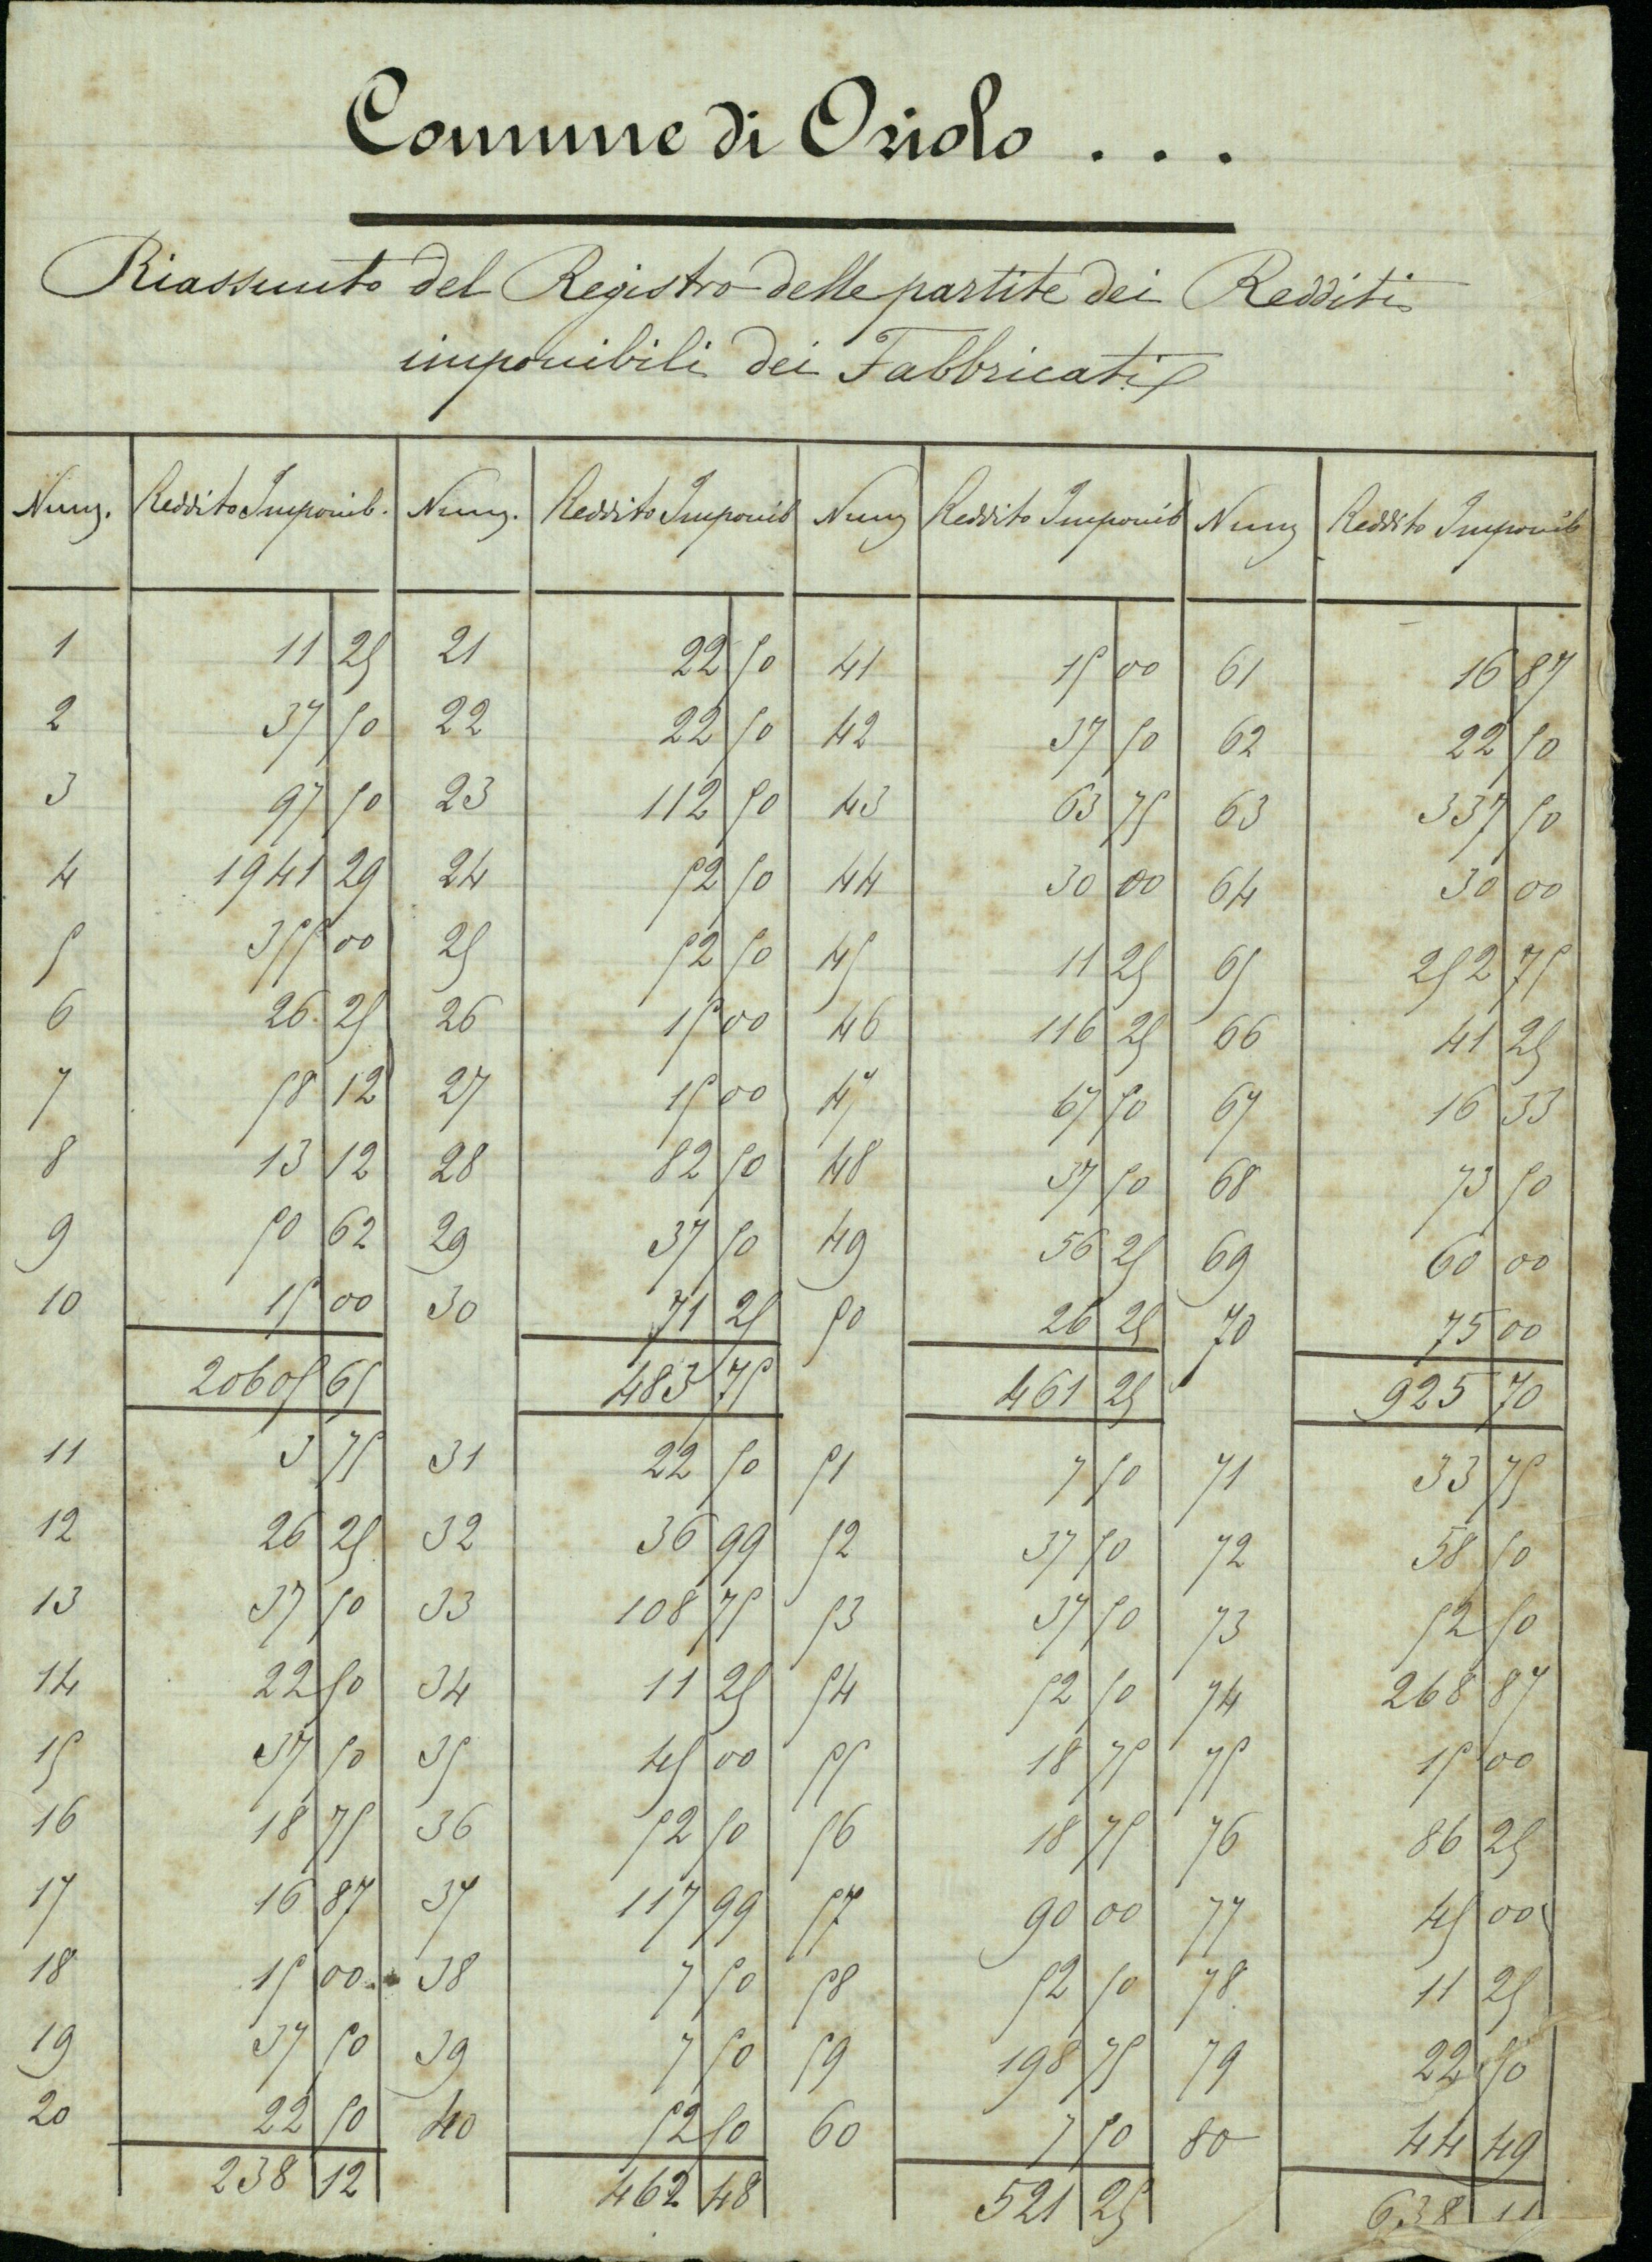 Comune di Oriolo . . .
Riassunto del Registro delle partite dei Redditi
imponibili dei Fabbricati
Num. Reddito Imponib. Num. Reddito Imponib Num Reddito Imponib Num Reddito Imponib
1 11 25 21 22 50 41 15 00 61 16 87
2 37 50 22 22 50 42 37 50 62 22 50
3 97 50 23 112 50 43 63 75 63 337 50
4 1941 29 24 52 50 44 30 00 64 30 00
5 355 00 25 52 50 45 11 25 65 252 75
6 26 25 26 15 00 46 116 25 66 41 25
7 58 12 27 15 00 47 67 50 67 16 33
8 13 12 28 82 50 48 37 50 68 73 50
9 50 62 29 37 50 49 56 25 69 60 00
10 15 00 30 71 25 50 26 25 70 75 00
20605 65 483 75 461 25 925 70
11 3 75 31 22 50 51 7 50 71 33 75
12 26 25 32 36 99 52 37 50 72 58 50
13 37 50 33 108 75 53 37 50 73 52 50
14 22 50 34 11 25 54 52 50 74 268 87
15 37 50 35 45 00 55 18 75 75 15 00
16 18 75 36 52 50 56 18 75 76 86 25
17 16 87 37 117 99 57 90 00 77 45 00
18 15 00 38 7 50 58 52 50 78 11 25
19 37 50 39 7 50 59 198 75 79 22 50
20 22 50 40 52 50 60 7 50 80 44 49
238 12 462 48 521 25 638 11